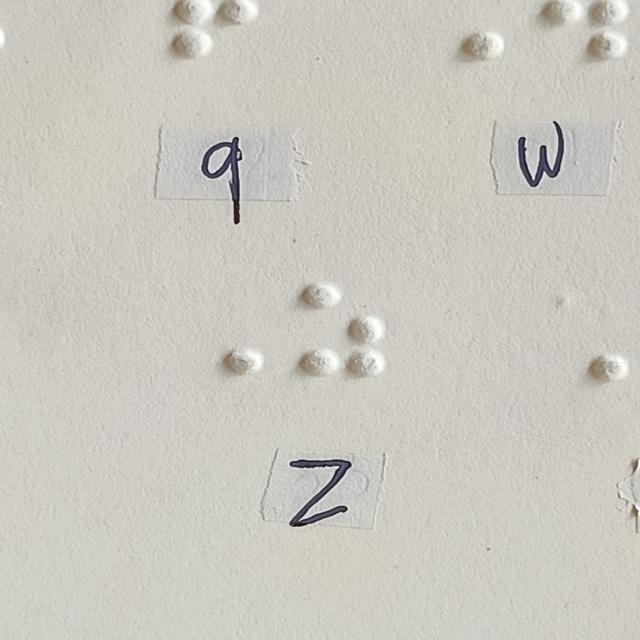 q w
z